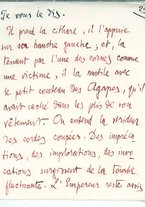 Je vous le dis.
Il prend la cithare, il l'appuie
sur son hanche gauche, et, la
tenant par l'une des cornes comme
une victime, il la mutile avec
le petit couteau des Agapes, qu'il
avait caché dans les plis de son
vêtement. On entend la strideur
des cordes coupées. Des impréca-
tions, les implorations, les invo-
cations surgissent de la tombe
fluctuante. L'Empereur reste assis